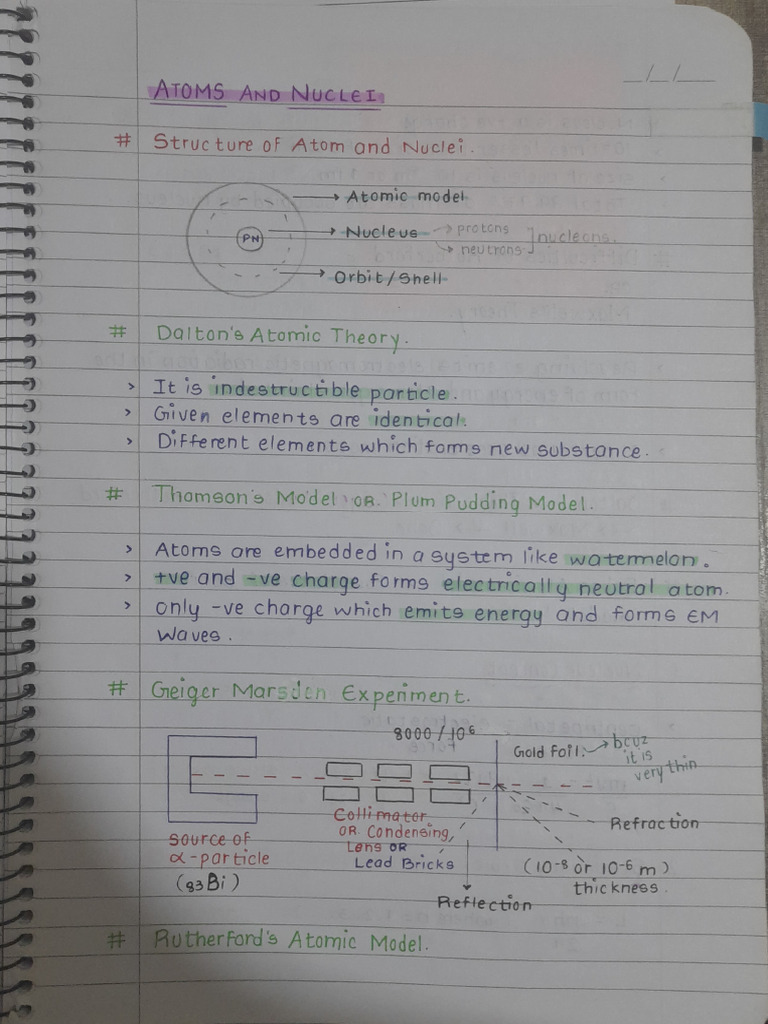 __/__/__
ATOMS AND NUCLEI
# Structure of Atom and Nuclei.
Atomic model
PN
Nucleus → protons
neutrons
nucleons.
Orbit/Shell
# Dalton's Atomic Theory.
> It is indestructible particle.
> Given elements are identical.
> Different elements which forms new substance.
# Thomson's Model OR Plum Pudding Model.
> Atoms are embedded in a system like watermelon.
> +ve and -ve charge forms electrically neutral atom.
> only -ve charge which emits energy and forms EM
Waves.
# Geiger Marsden Experiment.
8000/10⁶
Gold foil. → bcuz
it is
very thin
Collimator
OR Condensing,
Lens OR
Lead Bricks
Refraction
source of
α-particle
(83Bi)
(10⁻⁸ or 10⁻⁶ m)
thickness.
Reflection
# Rutherford's Atomic Model.